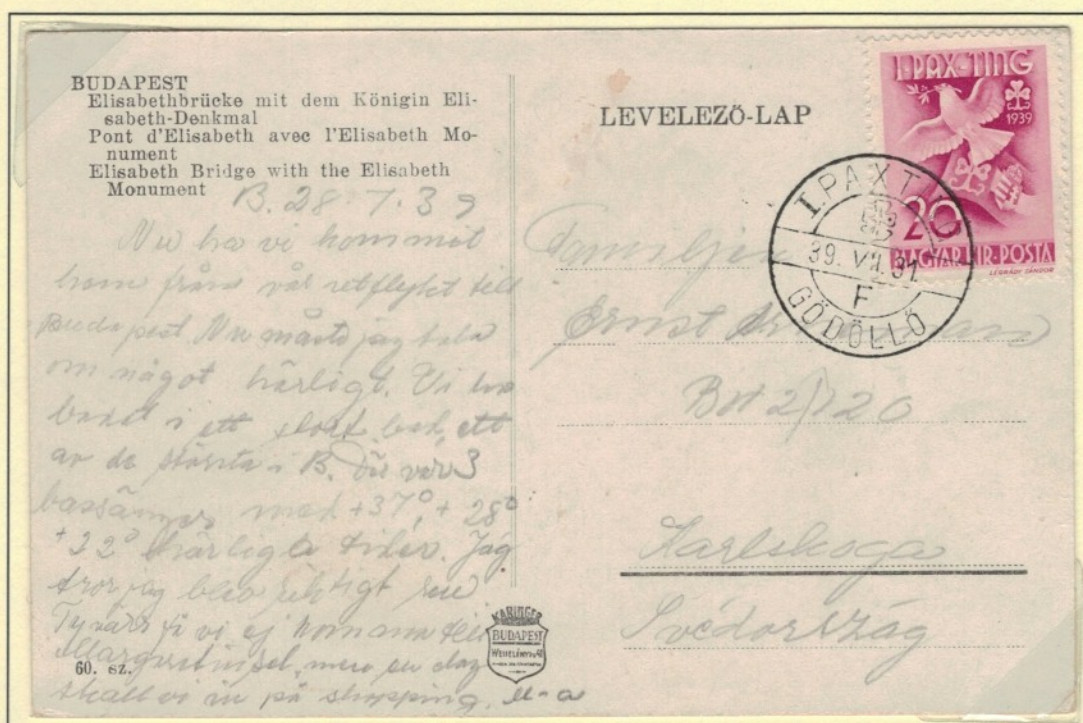 BUDAPEST
Elisabethbrücke mit dem Königin Eli-
sabeth-Denkmal
Pont d'Elisabeth avec l'Elisabeth Mo-
nument
Elisabeth Bridge with the Elisabeth
Monument
B. 28 7.39
Nu ha vi kommit
hem från vår utflykt till
Budapest. Nu måste jag tala
om något härligt. Vi ha
badat i ett stort bad, ett
av de största i B. Där var 3
bassänger med +37°, + 28°
+22° härliga tider. Jag
tror jag blev riktigt ren
Tyvärr få vi ej komma till
Margaretinsel, men en dag
skall vi in på shopping.
60. sz.
KARINGER
BUDAPEST
LEVELEZŐ-LAP
I. PAX-TING
1939
20
MAGYAR KIR. POSTA
LÉGRÁDY SÁNDOR
I. PAXT
39. VII. 31.
F
GÖDÖLLŐ
Familjen
Ernst
Box 2120
Karlskoga
Svédország